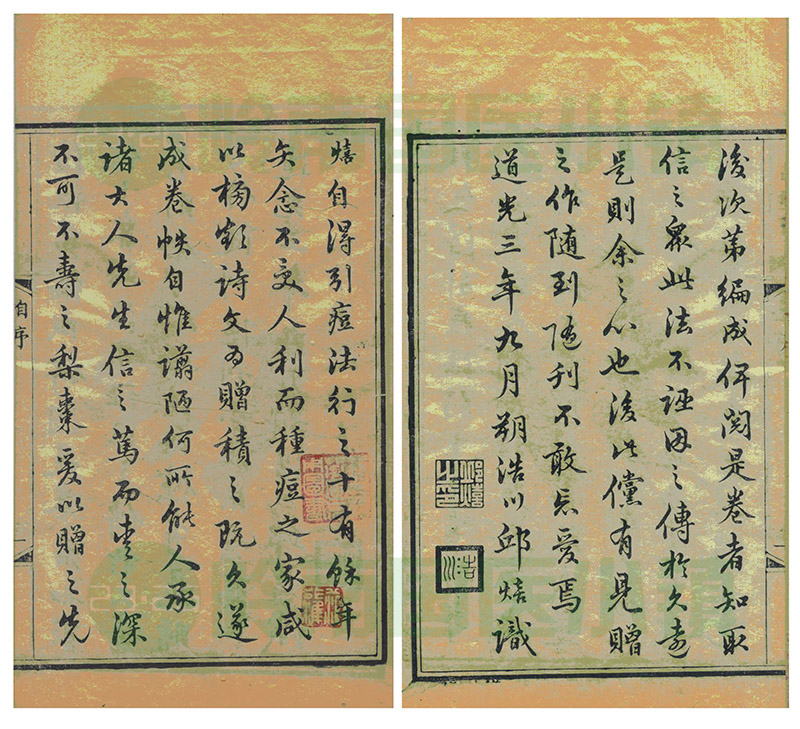 熺自得引痘法行之十有餘年
矢念不受人利而種痘之家咸
以詩文為贈積之既久遂
成卷帙自惟譾陋何所能人承
諸大人先生信之篤而愛之深
不可不壽之梨棗爰以贈之先
自序
後次第編成俾閱是卷者知取
信之衆此法不誣因之傳於久遠
是則余之心也後此儻有見贈
之作隨到隨刊不敢忘愛焉
道光三年九月朔浩川邱熺識
邱熺之印
浩川